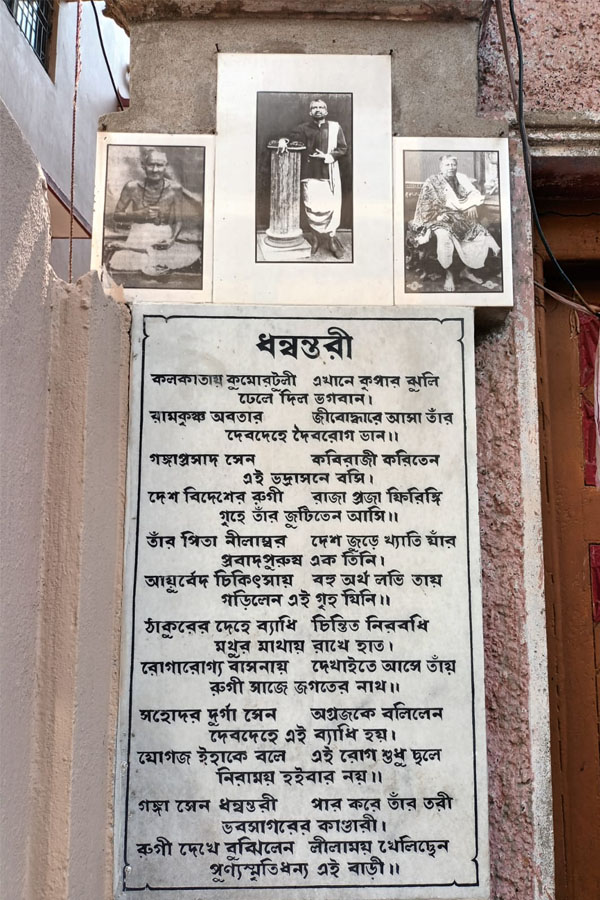 ধন্বন্তরী
কলকাতায় কুমোরটুলী এখানে কৃপার ঝুলি
ঢেলে দিল ভগবান।
রামকৃষ্ণ অবতার জীবোদ্ধারে আসা তাঁর
দেবদেহে দৈবরোগ ভান।।
গঙ্গাপ্রসাদ সেন কবিরাজী করিতেন
এই ভদ্রাসনে বসি।
দেশ বিদেশের রুগী রাজা প্রজা ফিরিঙ্গি
গৃহে তাঁর জুটিতেন আসি।।
তাঁর পিতা নীলাম্বর দেশ জুড়ে খ্যাতি যাঁর
প্রবাদপুরুষ এক তিনি।
আয়ুর্বেদ চিকিৎসায় বহু অর্থ লভি তায়
গড়িলেন এই গৃহ যিনি।।
ঠাকুরের দেহে ব্যাধি চিন্তিত নিরবধি
মথুর মাথায় রাখে হাত।
রোগারোগ্য বাসনায় দেখাইতে আসে তাঁয়
রুগী সাজে জগতের নাথ।।
সহোদর দুর্গা সেন অগ্রজকে বলিলেন
দেবদেহে এই ব্যাধি হয়।
যোগজ ইহাকে বলে এই রোগ শুধু ছুলে
নিরাময় হইবার নয়।।
গঙ্গা সেন ধন্বন্তরী পার করে তাঁর তরী
ভবসাগরের কাণ্ডারী।
রুগী দেখে বুঝিলেন লীলাময় খেলিছেন
পূণ্যস্মৃতিধন্য এই বাড়ী।।